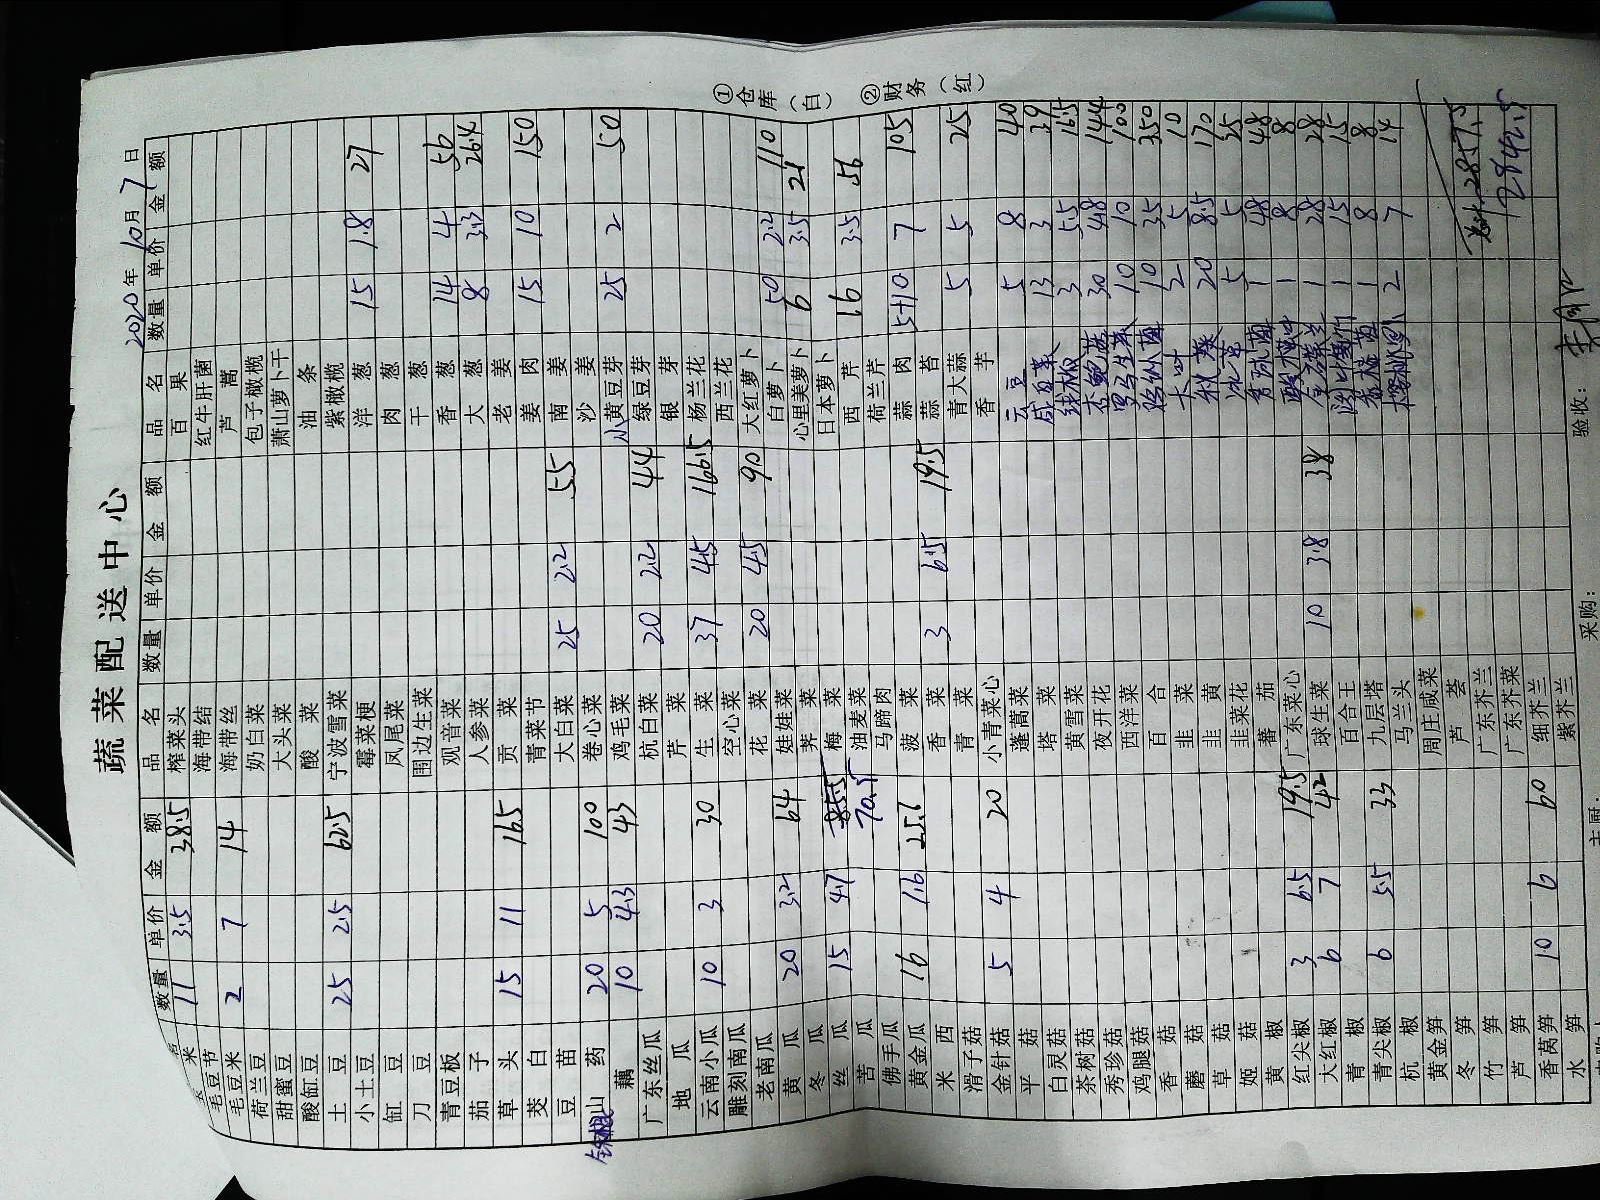 蔬菜配送中心
2020年10月7日
品名 数量 单价 金额 品名 数量 单价 金额 品名 数量 单价 金额
米 11 3.5 38.5 榨菜头 百果
毛豆节 海带结 红牛肝菌
毛豆米 2 7 14 海带丝 芦蒿
荷兰豆 奶白菜 包子橄榄
甜蜜豆 大头菜 萧山萝卜干
酸缸豆 酸菜 油条
土豆 25 2.5 62.5 宁波雪菜 紫橄榄
小土豆 霉菜梗 洋葱 15 1.8 27
缸豆 凤尾菜 肉葱
刀豆 围边生菜 干葱
青豆板 观音菜 香葱 14 4 56
茄子 人参菜 大葱 8 3.3 26.4
草头 15 11 165 贡菜 老姜
茭白 青菜节 姜肉 15 10 150
豆苗 大白菜 25 2.2 55 南姜
山药 20 5 100 卷心菜 沙姜
藕 10 4.3 43 鸡毛菜 小黄豆芽 25 2 50
广东丝瓜 杭白菜 20 2.2 44 绿豆芽
地瓜 芹菜 银芽
云南小瓜 10 3 30 生菜 37 4.5 166.5 杨兰花
雕刻南瓜 空心菜 西兰花
老南瓜 花菜 20 4.5 90 大红萝卜
黄瓜 20 3.2 64 娃娃菜 白萝卜 50 2.2 110
冬瓜 荠菜 心里美萝卜 6 3.5 21
丝瓜 15 4.7 70.5 梅菜 日本萝卜
苦瓜 油麦菜 西芹 16 3.5 56
佛手瓜 马蹄肉 荷兰芹
黄金瓜 16 1.6 25.6 菠菜 蒜肉 5+10 7 105
西米 香菜 3 6.5 19.5 蒜苔
滑子菇 青菜 青大蒜 5 5 25
金针菇 5 4 20 小青菜心 香芋
平菇 蓬蒿菜 云豆 5 8 40
白灵菇 塔菜 13 3 39
茶树菇 黄雪菜 线椒 3 5.5 16.5
秀珍菇 夜开花 杏鲍菇 30 4.8 144
鸡腿菇 西洋菜 罗马生菜 10 10 100
香菇 百合 10 35 350
蘑菇 韭菜 大叶 2 5 10
草菇 韭黄 20 8.5 170
姬菇 韭菜花 冰草 5 5 25
黄椒 蕃茄 1 48 48
红尖椒 3 6.5 19.5 广东菜心 1 8 8
大红椒 6 7 42 球生菜 10 3.8 38 1 28 28
青椒 百合王 1 15 15
青尖椒 6 5.5 33 九层塔 1 8 8
杭椒 马兰头 樱桃 2 7 14
黄金笋 周庄咸菜
冬笋 芦荟
竹笋 广东芥兰 2857.5
芦笋 广东芥菜 2842.5
香莴笋 10 6 60 细芥兰
水笋 紫芥兰
采购： 验收：
①仓库（白） ②财务（红）